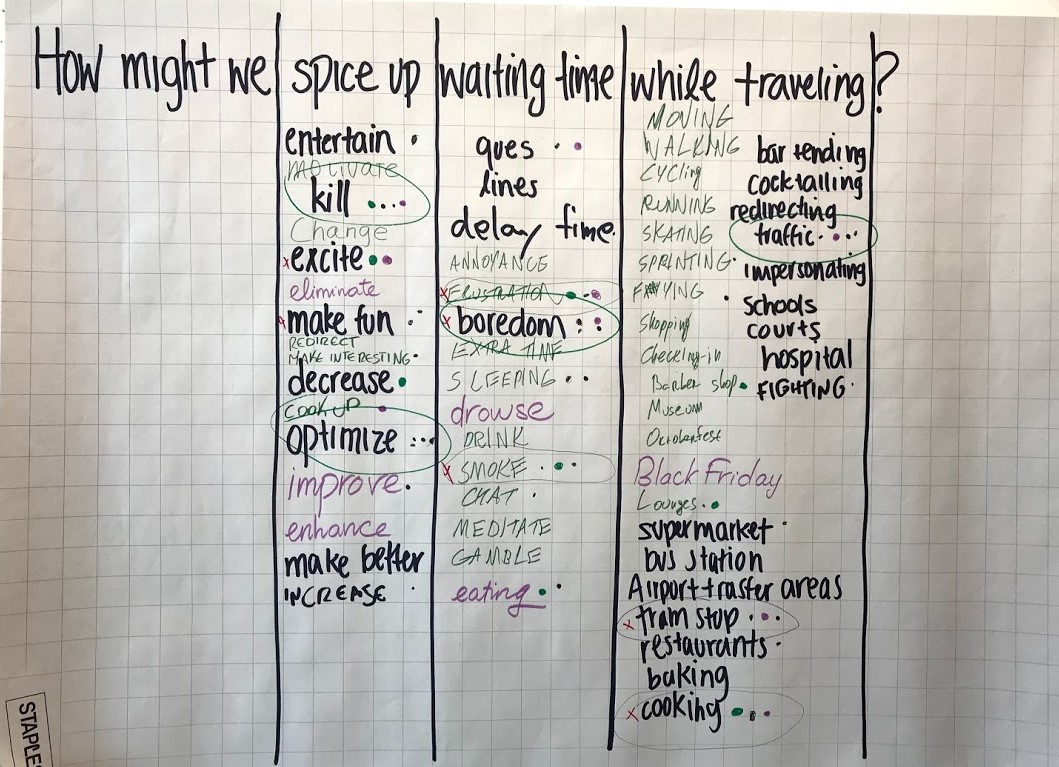 How might we spice up waiting time while traveling?
entertain
motivate
kill
Change
excite
eliminate
make fun
REDIRECT
MAKE INTERESTING
decrease
COOK UP
optimize
improve
enhance
make better
INCREASE
ques
lines
delay time
ANNOYANCE
FRUSTRATION
boredom
EXTRA TIME
SLEEPING
drowse
DRINK
SMOKE
CHAT
MEDITATE
GAMBLE
eating
MOVING
WALKING
CYCling
RUNNING
SKATING
SPRINTING
Shopping
Checking-in
Barber shop
Museum
Octoberfest
Black Friday
Lounges
supermarket
bus station
Airport+trasfer areas
tram stop
restaurants
baking
cooking
bar tending
cocktailing
redirecting
traffic
impersonating
schools
courts
hospital
FIGHTING
STAPLES